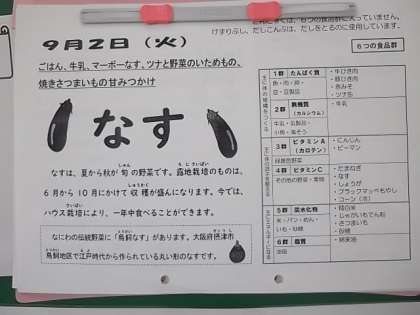 けずりぶし、だしこんぶは、だしをとるのに使用しています。
9月2日（火）
ごはん、牛乳、マーボーなす、ツナと野菜のいためもの、
焼きさつまいもの甘みつかけ
なす
なすは、夏から秋が旬の野菜です。露地栽培のものは、
6月から10月にかけて収穫が盛んになります。今では、
ハウス栽培により、一年中食べることができます。
なにわの伝統野菜に「鳥飼なす」があります。大阪府摂津市
鳥飼地区で江戸時代から作られている丸い形のなすです。
6つの食品群
1群 たんぱく質
魚・肉・卵・
豆・豆製品
・牛ひき肉
・豚ひき肉
・赤みそ
・ツナ缶
2群 無機質
（カルシウム）
牛乳・乳製品・
小魚・海そう
・牛乳
3群 ビタミンA
（カロテン）
緑黄色野菜
・にんじん
・ピーマン
4群 ビタミンC
その他の野菜・果物
・たまねぎ
・なす
・しょうが
・ブラックマッペもやし
・コーン（冷）
5群 炭水化物
米・パン・めん・
いも・砂糖
・精白米
・じゃがいもでん粉
・さつまいも
・砂糖
6群 脂質
油脂
・綿実油